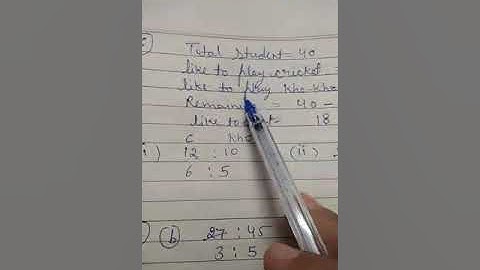 Total student = 40
like to play cricket
like to play kho kho
Remaining = 40 -
like to 18
c kho
i) 12 : 10 (ii)
6 : 5
(b) 27 : 45
3 : 5